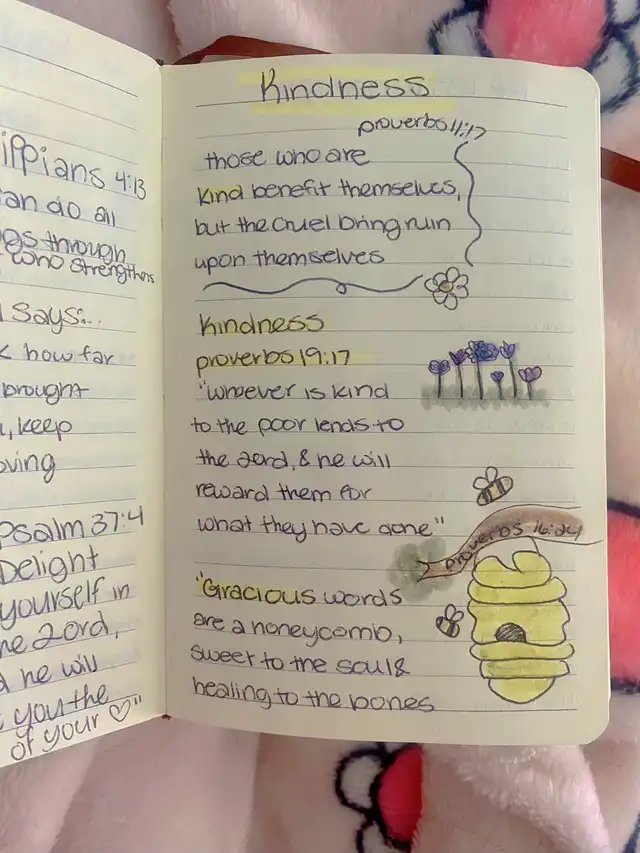 4:13
an do all
through
who strengthens
says:..
how far
brought
keep
Psalm 37:4
Delight
yourself in
Lord,
he will
you the
of your ♡"
Kindness
proverbs 11:17
those who are
kind benefit themselves,
but the cruel bring ruin
upon themselves
kindness
proverbs 19:17
"whoever is kind
to the poor lends to
the Lord, & he will
reward them for
what they have done"
proverbs 16:24
"Gracious words
are a honeycomb,
sweet to the soul &
healing to the bones